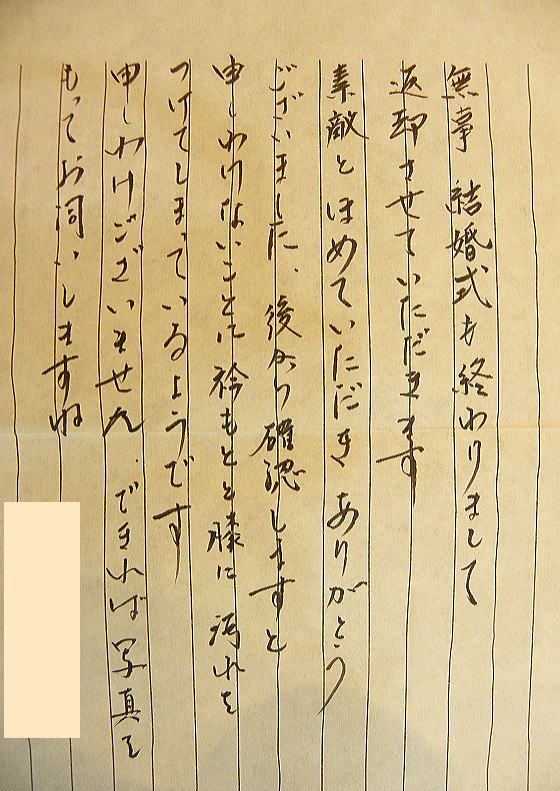 無事 結婚式も終わりまして
返却させていただきます
素敵とほめていただき ありがとう
ございました、後から確認しますと
申しわけないことに衿もとと膝に汚れを
つけてしまっているようです
申しわけございません、できれば写真を
もってお伺いしますね